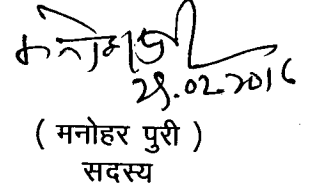 29.02.2016
( मनोहर पुरी )
सदस्य